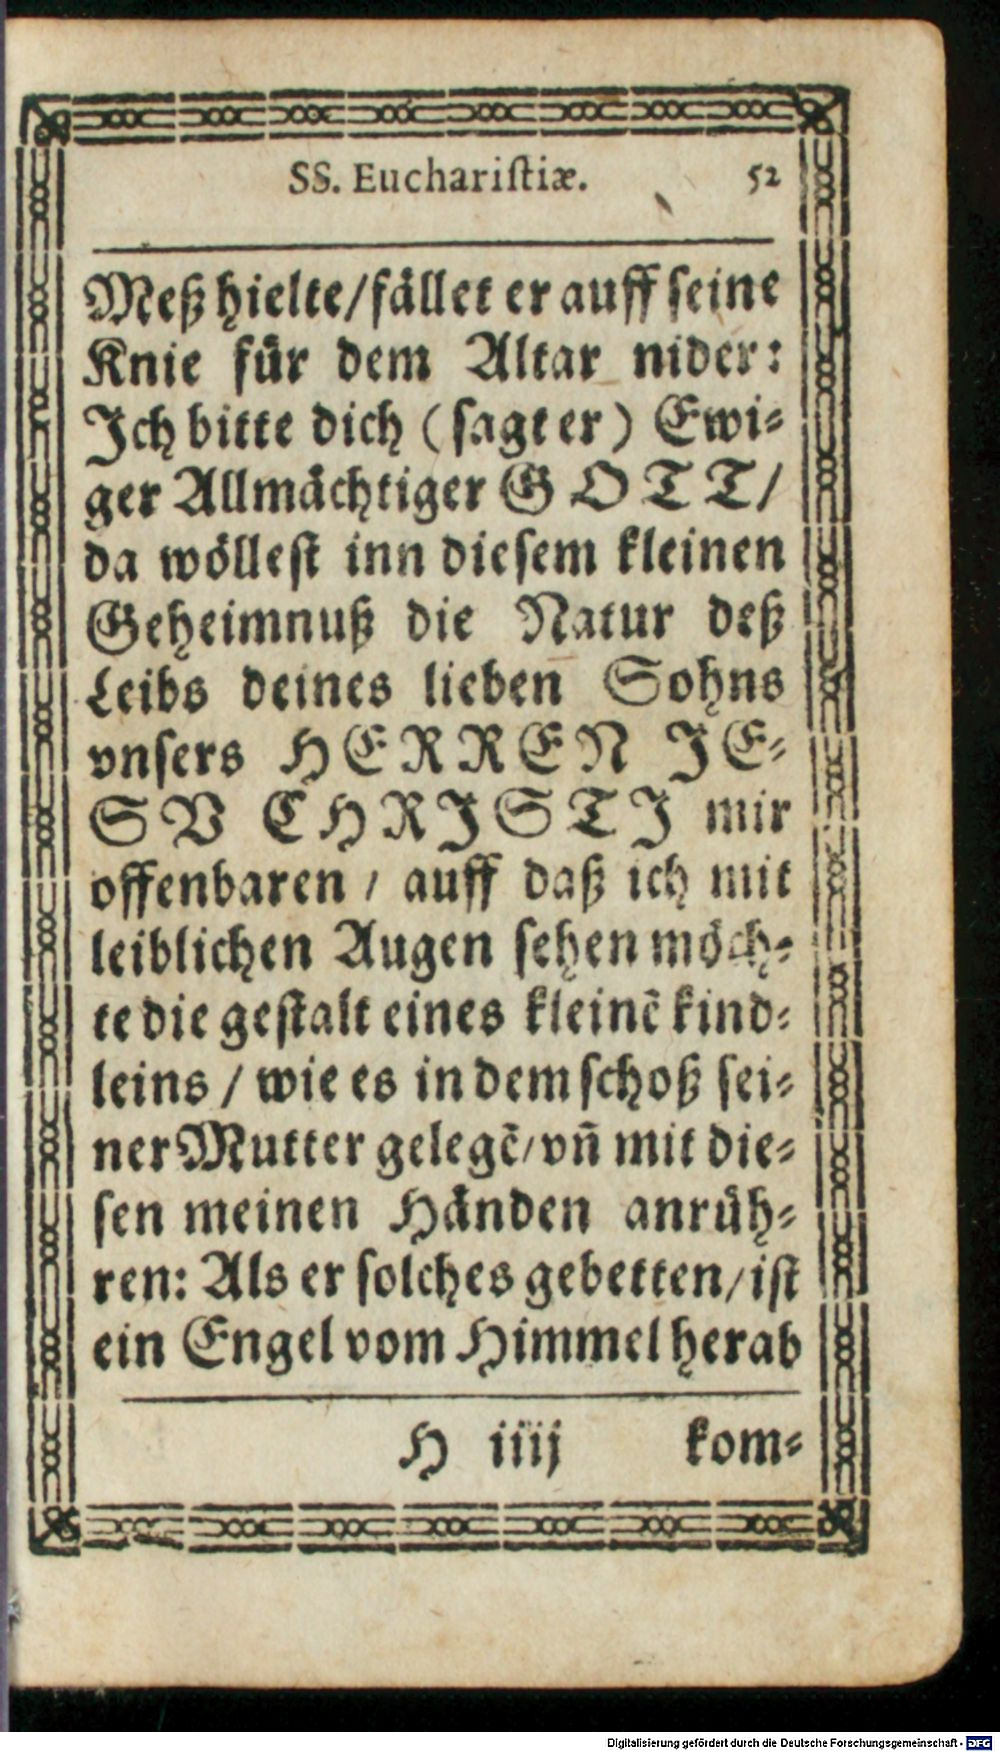 SS. Euchariſtiæ. 52
Meß hielte/fället er auff seine
Knie für dem Altar nider:
Ich bitte dich (sagt er) Ewi⸗
ger Allmächtiger GOTT/
da wöllest inn diesem kleinen
Geheimnuß die Natur deß
Leibs deines lieben Sohns
vnsers HERREN JE⸗
SV CHRISTI mir
offenbaren / auff daß ich mit
leiblichen Augen sehen möch⸗
te die gestalt eines kleinē kind⸗
leins / wie es in dem schoß sei⸗
ner Mutter gelegē/vñ mit die⸗
sen meinen Händen anrüh⸗
ren: Als er solches gebetten/ist
ein Engel vom Himmel herab
H iiij kom⸗
Digitalisierung gefördert durch die Deutsche Forschungsgemeinschaft - DFG